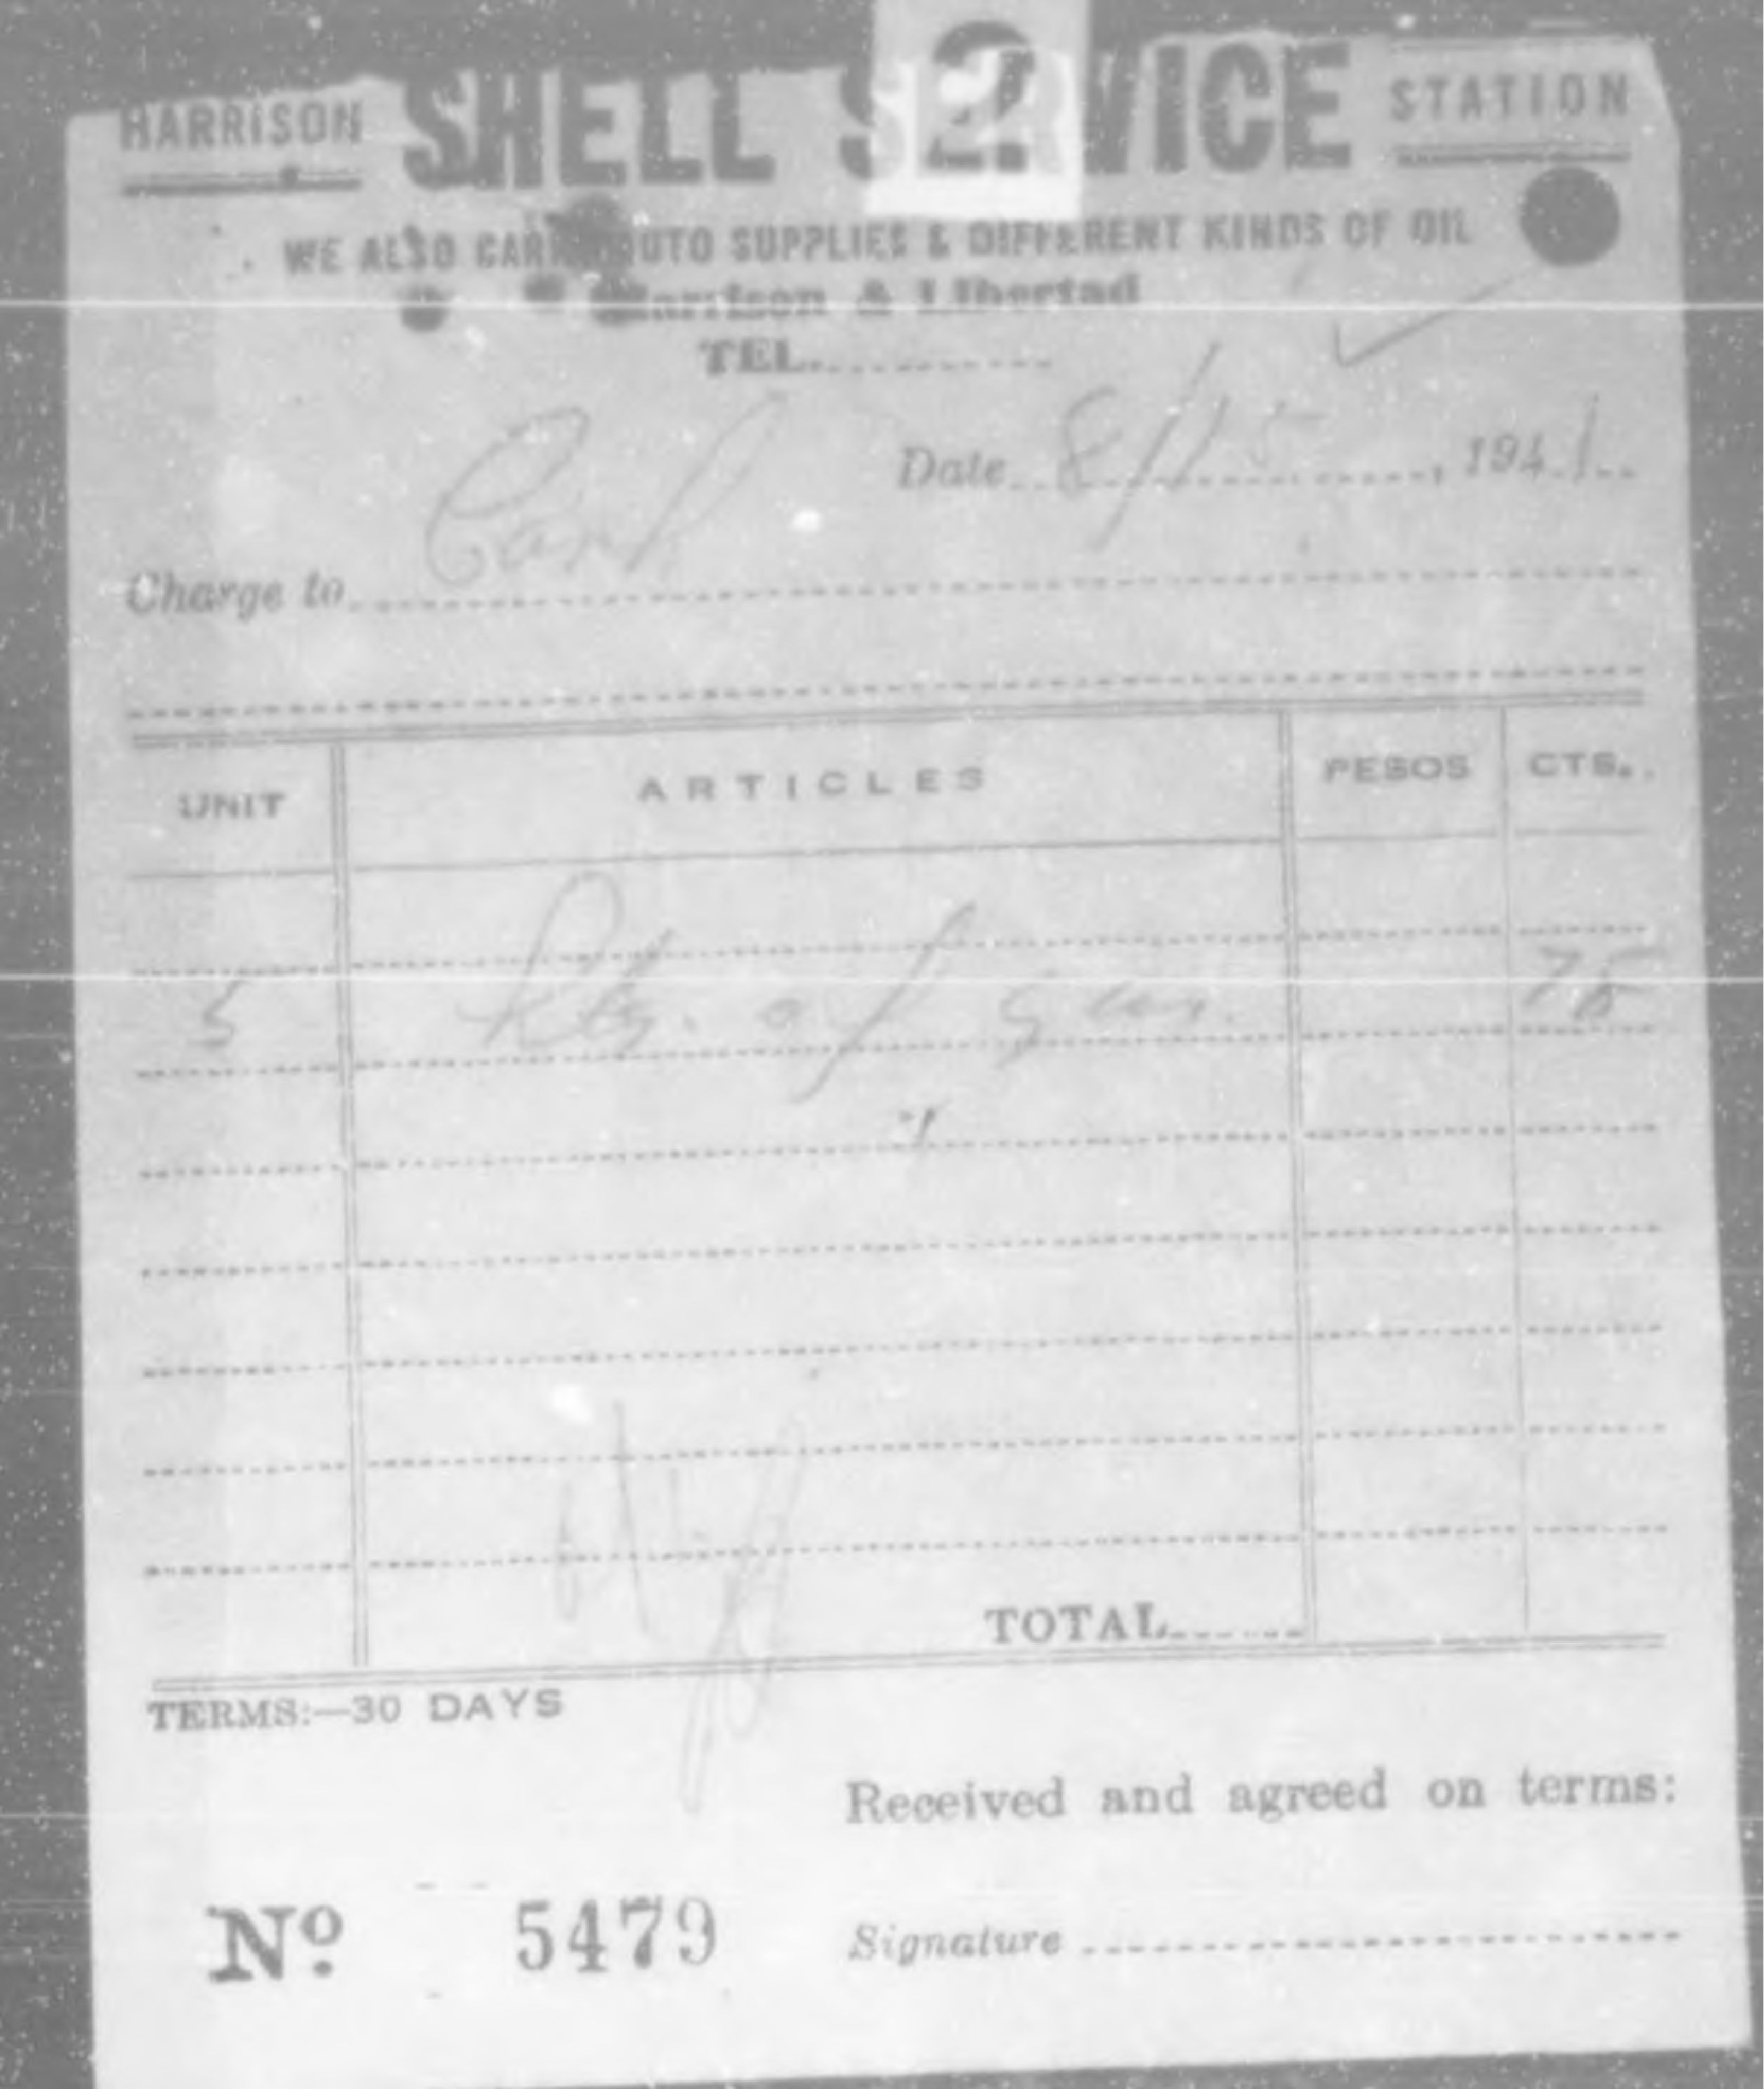 2
HARRISON SHELL SERVICE STATION
WE ALSO CARRY AUTO SUPPLIES & DIFFERENT KINDS OF OIL
Harrison & Libertad
TEL.
Date 8/15, 1941
Charge to
UNIT ARTICLES PESOS CTS.
5 Lts. of gas. 75
TOTAL
TERMS:—30 DAYS
Received and agreed on terms:
Nº 5479 Signature